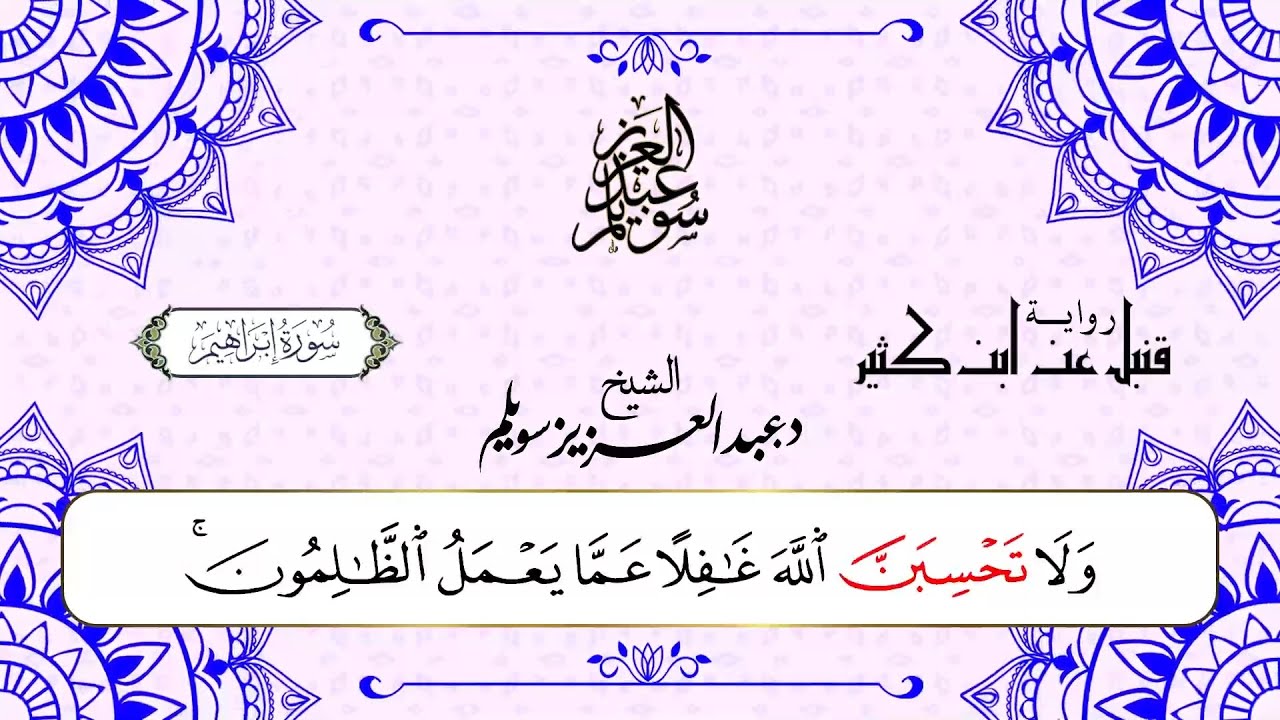 عبد العزيز سويلم
رواية
قنبل عن ابن كثير
سُورَةُ إِبْرَاهِيمَ
الشيخ
د عبد العزيز سويلم
وَلَا تَحْسِبَنَّ ٱللَّهَ غَٰفِلًا عَمَّا يَعْمَلُ ٱلظَّٰلِمُونَ ۚ